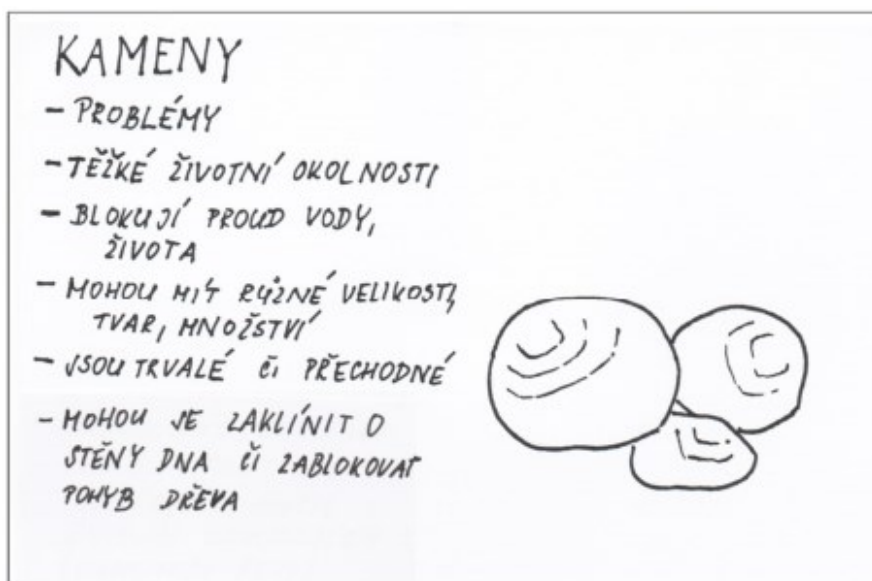 KAMENY
- PROBLÉMY
- TĚŽKÉ ŽIVOTNÍ OKOLNOSTI
- BLOKUJÍ PROUD VODY,
ŽIVOTA
- MOHOU MÍT RŮZNÉ VELIKOSTI,
TVAR, MNOŽSTVÍ
- JSOU TRVALÉ či PŘECHODNÉ
- MOHOU SE ZAKLÍNIT O
STĚNY DNA či ZABLOKOVAT
POHYB DŘEVA